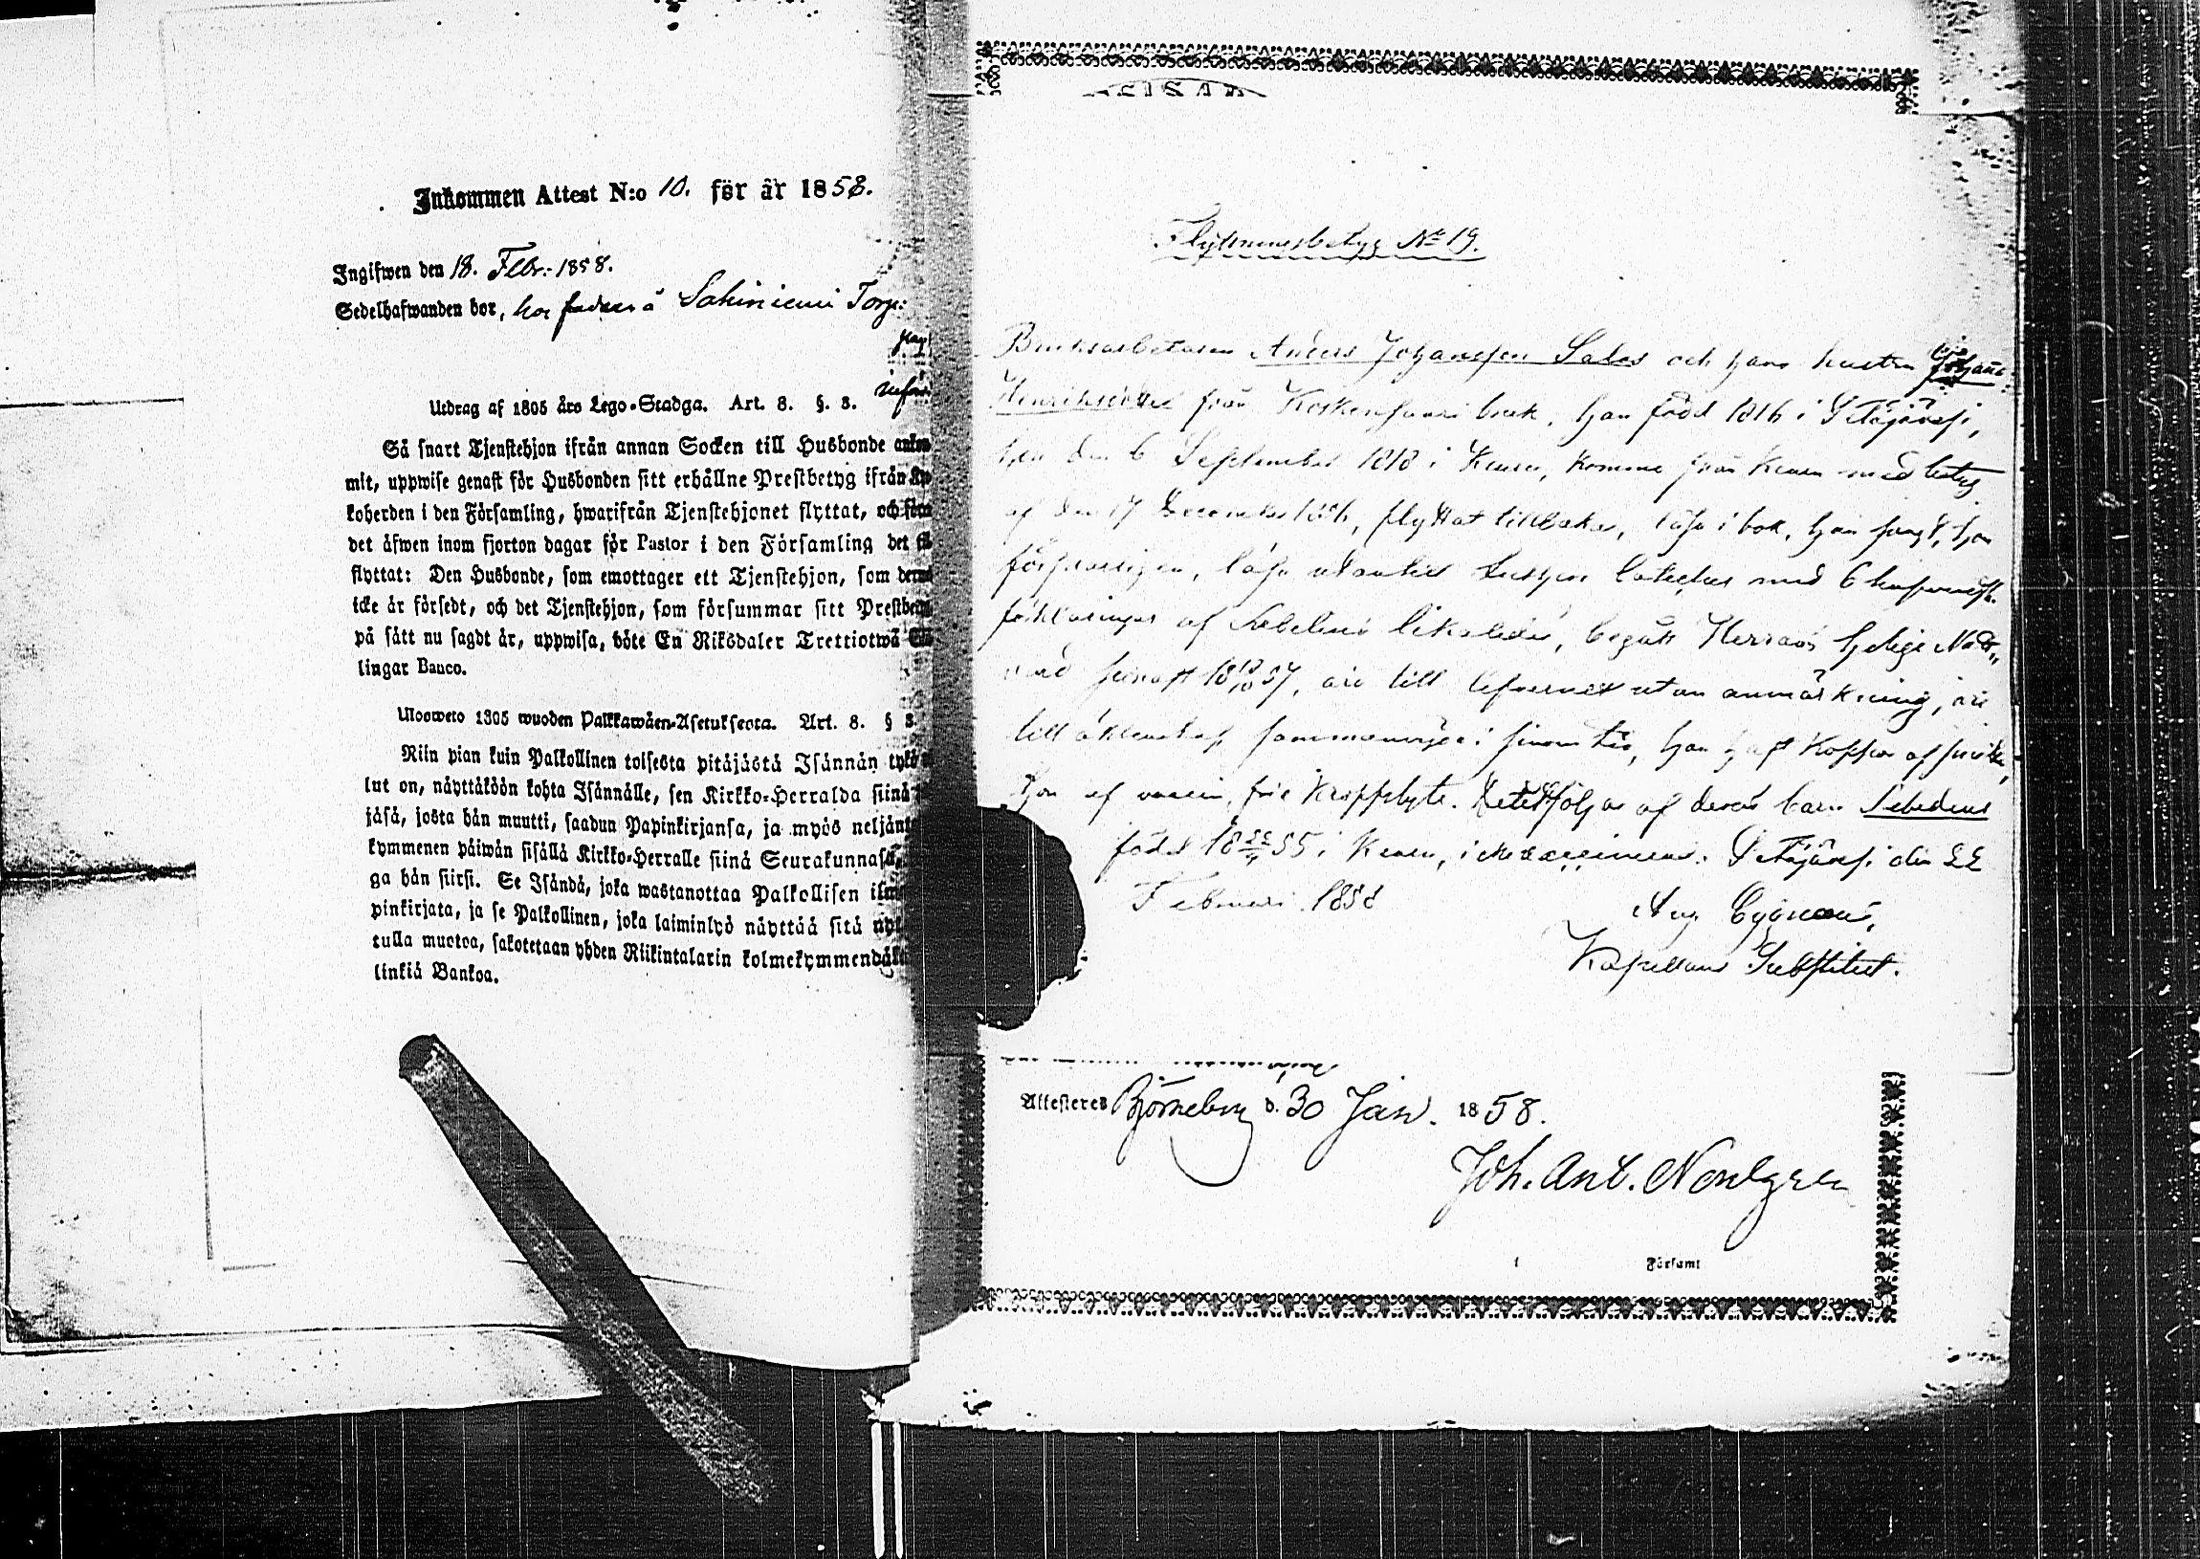 Inkommen Attest N:o 10. för år 1858.
Ingifwen den 18. Febr: 1858.
Sedelhafwanden bor, hos fadren å Sahiniemi Torp:
Utdrag af 1805 års Lego-Stadga. Art. 8. §. 3.
Så snart Tjenstehjon ifrån annan Socken till Husbonde ankom
mit, uppwise genast för Husbonden sitt erhållne Prestbetyg ifrån Ky
koherden i den Församling, hwarifrån Tjenstehjonet flyttat, och
det äfwen inom fjorton dagar för Pastor i den Församling det
flyttat: Den Husbonde, som emottager ett Tjenstehjon, som der
icke är försedt, och det Tjenstehjon, som försummar sitt Prestbe
på sätt nu sagdt är, uppwisa, böte En Riksdaler Trettiotwå
lingar Banco.
Uloosweto 1805 wuoden Palkkawäen-Asetuksesta. Art. 8. § 3.
Niin pian kuin Palkollinen toisesta pitäjästä Isännän tykö
lut on, näyttäköön kohta Isännälle, sen Kirkko-Herralda siinä
jäsä, josta hän muutti, saadun Papinkirjansa, ja myös neljän
kymmenen päiwän sisällä Kirkko-Herralle siinä Seurakunnasa,
ga hän siirsi. Se Isändä, joka wastanottaa Palkollisen ilm
pinkirjata, ja se Palkollinen, joka laiminlyö näyttää sitä ny
tulla muotoa, sakotetaan yhden Riikintalarin kolmekymmendä
linkiä Bankoa.
Flyttningsbetyg No 19.
Bruksarbetaren Anders Johansson Salos och hans hustru Johana
Henriksdotter från Koskensaari bruk, han född 1816 i
hon den 6 September 1818 i Keuru, komne från Keuru med betyg
af den 17 December 1856, flyttat tillbaka, läsa i bok, han svagt, hon
försvarligen, läsa utantill Luthers Cateches med
förklaringar af Sebelius likaledes, begått Herrans Helige Natt-
vard senast 18 18/10 57, äro till lefvernet utan anmärkning, äro
till äktenskap sammanvigde i sinom tid, han haft Koppor af smitta,
hon af vaccin, frie Kroppslyte. Medföljer af deras barn
född 18 22/11 55 i Keuru, icke vaccinerad. den 22
Februari 1858
Aug. Cygnæus,
Kapellans Substitut.
Attesteres Björneborg d. 30 Jan. 1858.
Joh. Ant. Nordgren
Församl